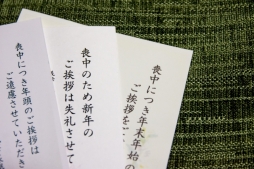 喪中につき年末年始の
ご挨拶をご
喪中のため新年の
ご挨拶は失礼させて
喪中につき年頭のご挨拶は
ご遠慮させていただき